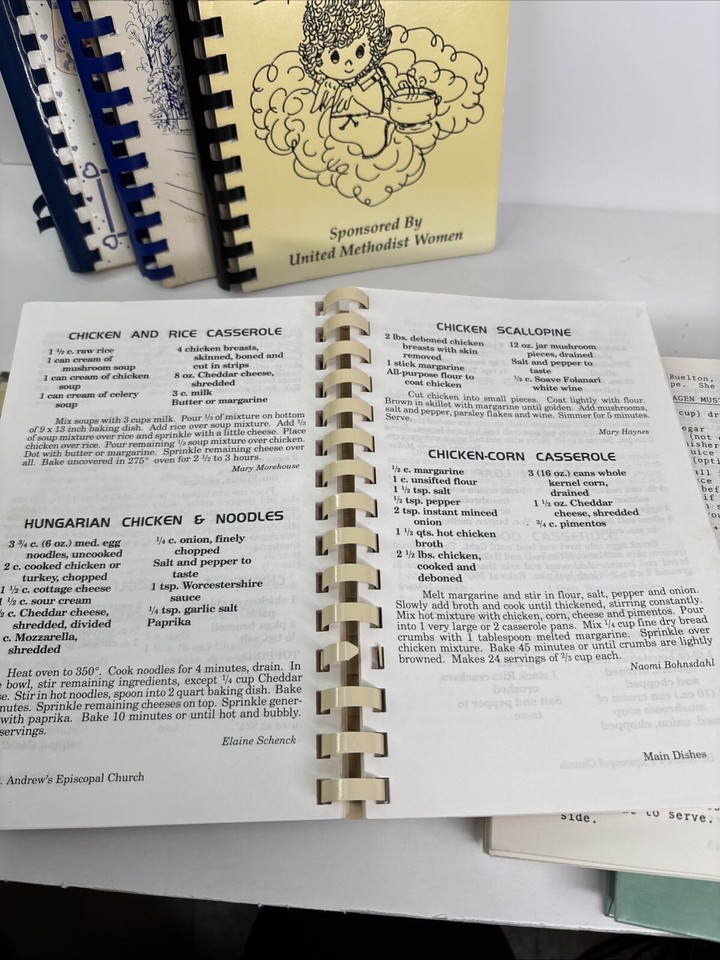 Sponsored By
United Methodist Women
CHICKEN AND RICE CASSEROLE
1 ½ c. raw rice
1 can cream of
mushroom soup
1 can cream of chicken
soup
1 can cream of celery
soup
4 chicken breasts,
skinned, boned and
cut in strips
8 oz. Cheddar cheese,
shredded
3 c. milk
Butter or margarine
Mix soups with 3 cups milk. Pour ⅓ of mixture on bottom
of 9 x 13 inch baking dish. Add rice over soup mixture. Add ⅓
of soup mixture over rice and sprinkle with a little cheese. Place
chicken over rice. Pour remaining ⅓ soup mixture over chicken.
Dot with butter or margarine. Sprinkle remaining cheese over
all. Bake uncovered in 275° oven for 2 ½ to 3 hours.
Mary Morehouse
HUNGARIAN CHICKEN & NOODLES
3 ¾ c. (6 oz.) med. egg
noodles, uncooked
2 c. cooked chicken or
turkey, chopped
1 ½ c. cottage cheese
1 ½ c. sour cream
c. Cheddar cheese,
shredded, divided
c. Mozzarella,
shredded
¼ c. onion, finely
chopped
Salt and pepper to
taste
1 tsp. Worcestershire
sauce
¼ tsp. garlic salt
Paprika
Heat oven to 350°. Cook noodles for 4 minutes, drain. In
bowl, stir remaining ingredients, except ¼ cup Cheddar
Stir in hot noodles, spoon into 2 quart baking dish. Bake
Sprinkle remaining cheeses on top. Sprinkle gener-
with paprika. Bake 10 minutes or until hot and bubbly.
servings.
Elaine Schenck
Andrew's Episcopal Church
CHICKEN SCALLOPINE
2 lbs. deboned chicken
breasts with skin
removed
1 stick margarine
All-purpose flour to
coat chicken
12 oz. jar mushroom
pieces, drained
Salt and pepper to
taste
⅓ c. Soave Folanari
white wine
Cut chicken into small pieces. Coat lightly with flour.
Brown in skillet with margarine until golden. Add mushrooms,
salt and pepper, parsley flakes and wine. Simmer for 5 minutes.
Serve.
Mary Haynes
CHICKEN-CORN CASSEROLE
½ c. margarine
1 c. unsifted flour
1 ½ tsp. salt
½ tsp. pepper
2 tsp. instant minced
onion
1 ½ qts. hot chicken
broth
2 ½ lbs. chicken,
cooked and
deboned
3 (16 oz.) cans whole
kernel corn,
drained
1 ½ oz. Cheddar
cheese, shredded
¾ c. pimentos
Melt margarine and stir in flour, salt, pepper and onion.
Slowly add broth and cook until thickened, stirring constantly.
Mix hot mixture with chicken, corn, cheese and pimentos. Pour
into 1 very large or 2 casserole pans. Mix ¼ cup fine dry bread
crumbs with 1 tablespoon melted margarine. Sprinkle over
chicken mixture. Bake 45 minutes or until crumbs are lightly
browned. Makes 24 servings of ⅔ cup each.
Naomi Bohnsdahl
Main Dishes
Buelton,
She
cup)
(not
side.
to serve.